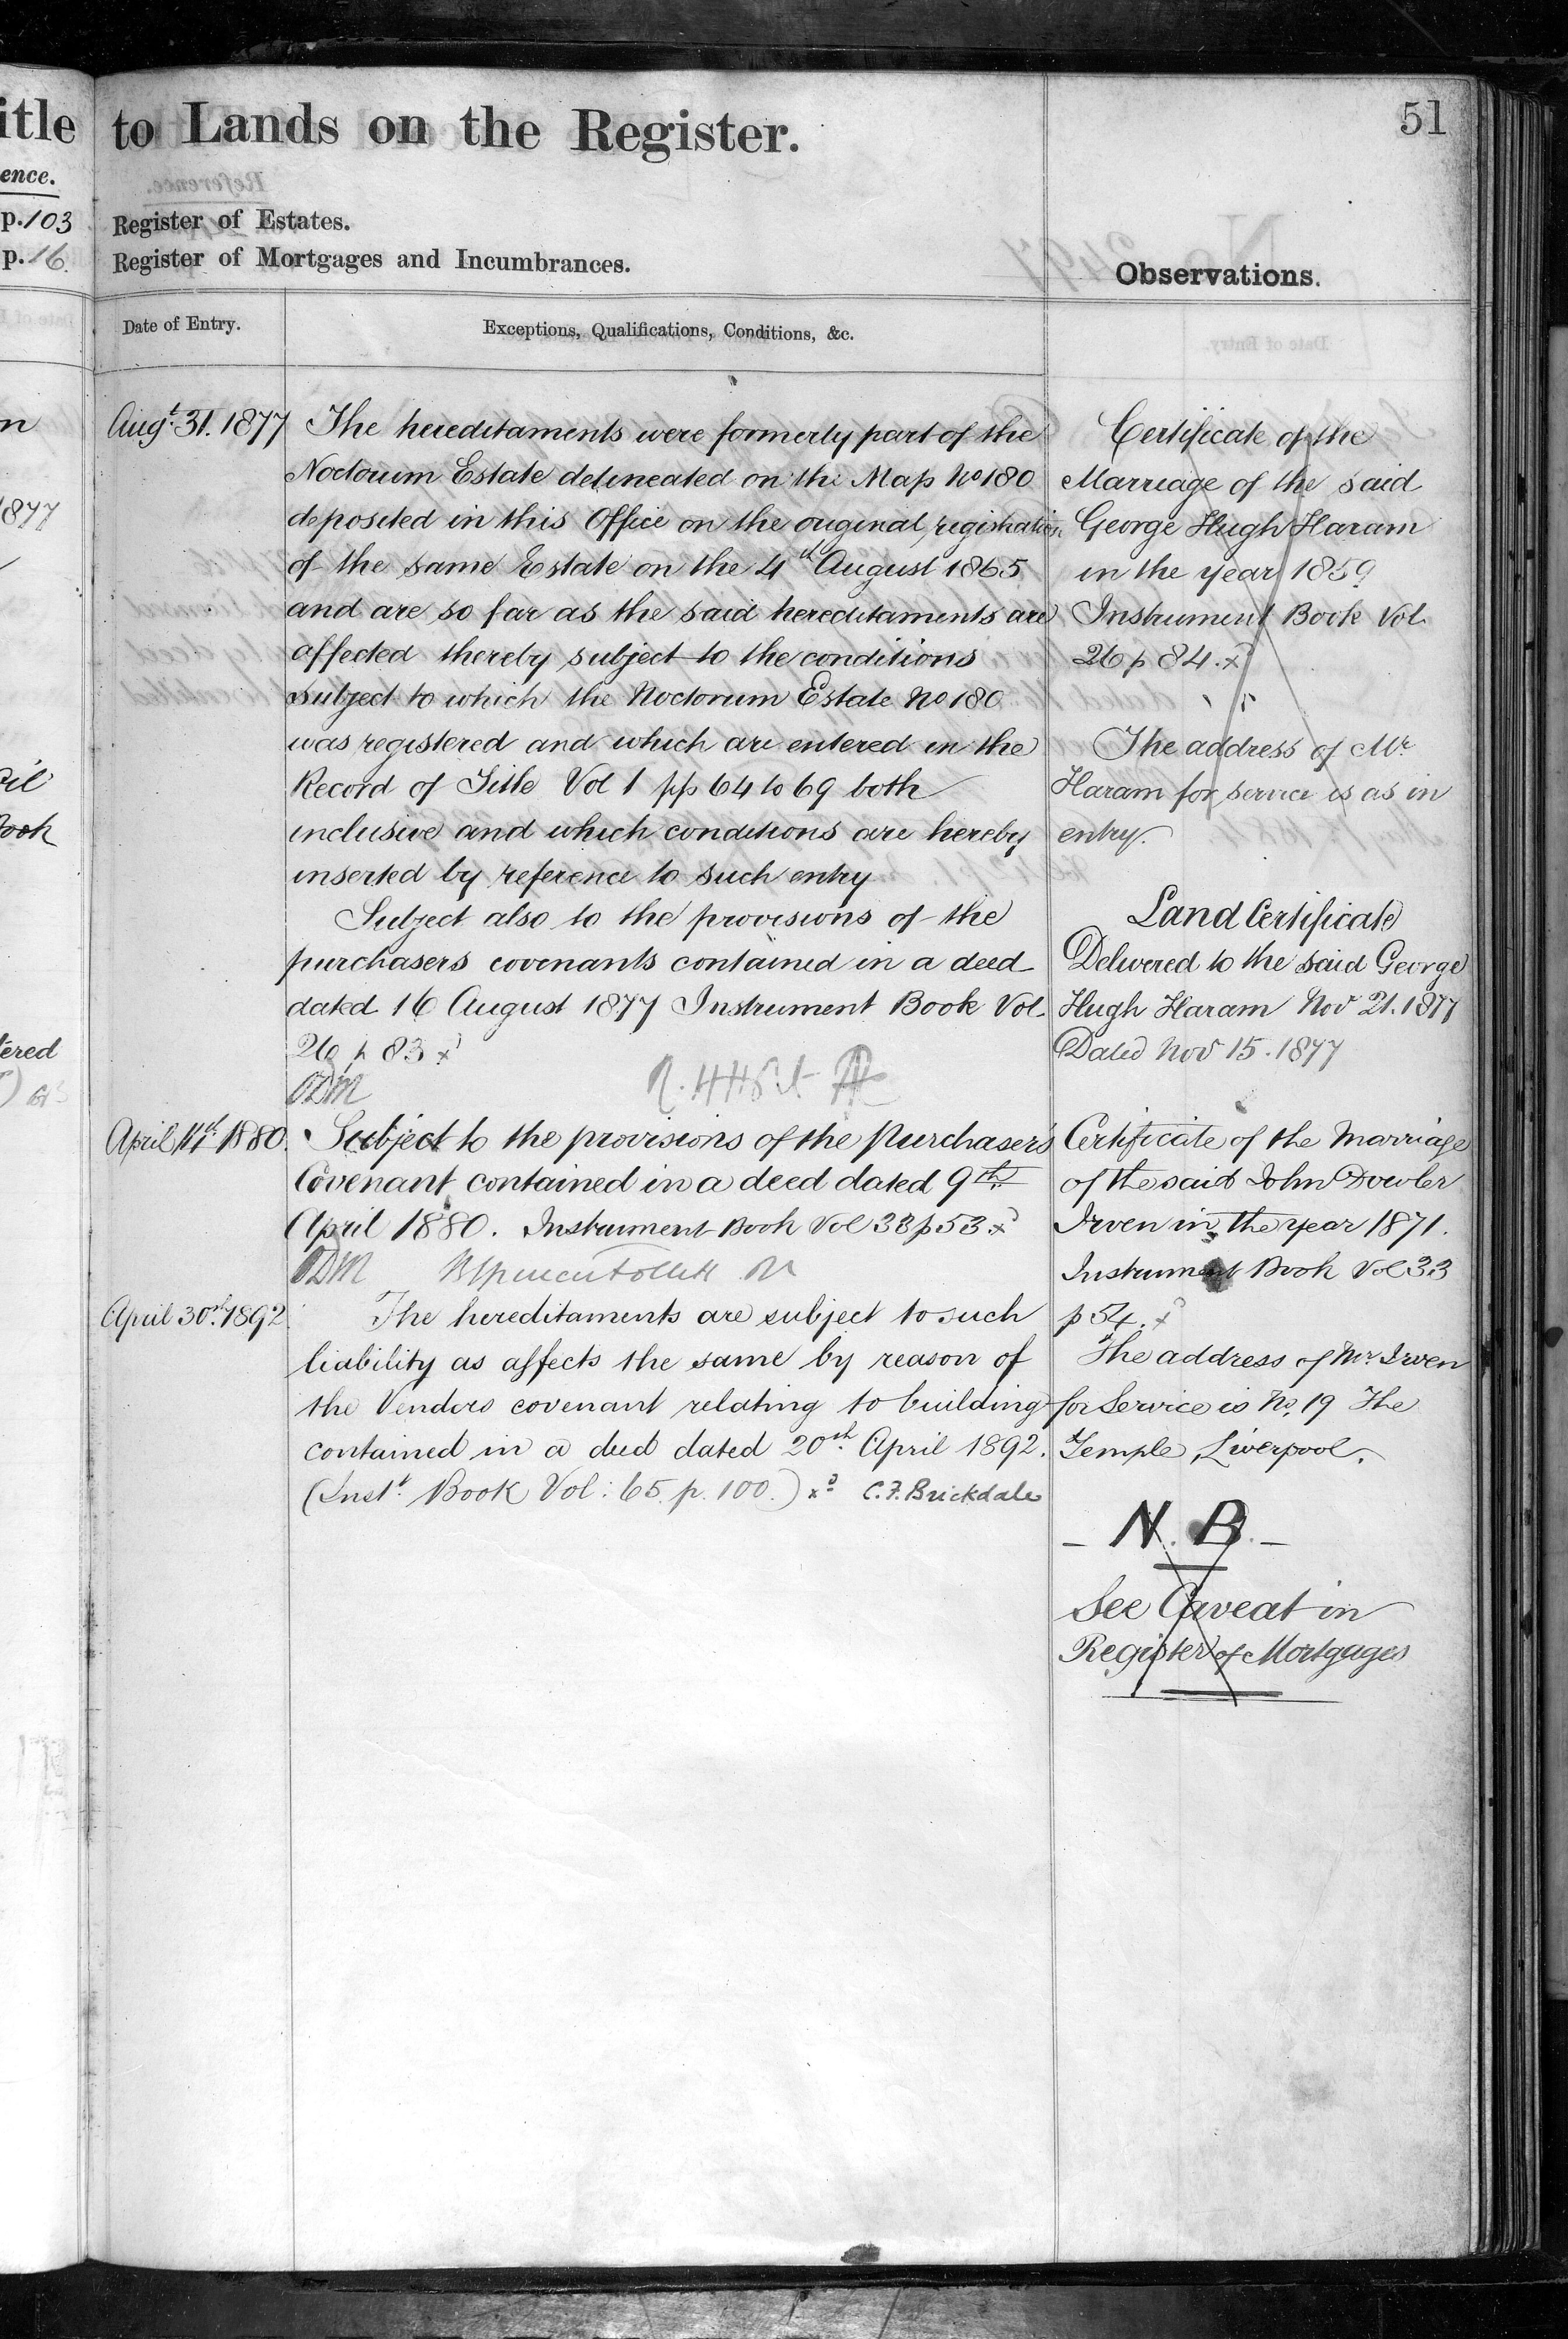 itle
ence.
p. 103
p. 16.
n
1877
ook
ered
to Lands on the Register.
51
Register of Estates.
Register of Mortgages and Incumbrances.
Observations.
Date of Entry.
Exceptions, Qualifications, Conditions, &c.
Augt. 31. 1877
The hereditaments were formerly part of the
Noctorum Estate delineated on the Map No 180
deposited in this Office on the original registration
of the same Estate on the 4th August 1865
and are so far as the said hereditaments are
affected thereby subject to the conditions
subject to which the Noctorum Estate No 180
was registered and which are entered in the
Record of Title Vol 1 pp 64 to 69 both
inclusive and which conditions are hereby
inserted by reference to such entry
Subject also to the provisions of the
purchasers covenants contained in a deed
dated 16 August 1877 Instrument Book Vol.
26 p 83 x
April 11th 1880.
Subject to the provisions of the Purchaser's
Covenant contained in a deed dated 9th
April 1880. Instrument Book Vol 33 p 53 x
April 30th 1892
The hereditaments are subject to such
liability as affects the same by reason of
the Vendors covenant relating to building
contained in a deed dated 20th April 1892.
(Inst. Book Vol: 65. p. 100.) x C. F. Brickdale
Certificate of the
Marriage of the said
George Hugh Haram
in the year 1859
Instrument Book Vol.
26 p 84. x
The address of Mr
Haram for service is as in
entry.
Land Certificate
Delivered to the said George
Hugh Haram Nov 21. 1877
Dated Nov 15. 1877
Certificate of the Marriage
of the said John Dowler
Irven in the year 1871.
Instrument Book Vol 33
p 54. x
The address of Mr Irven
for Service is No. 19 The
Temple, Liverpool.
- N. B. -
See Caveat in
Register of Mortgages